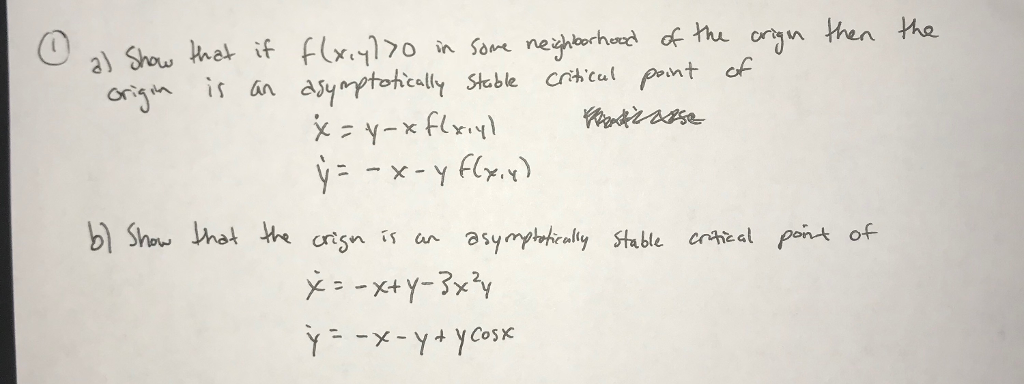 ① a) Show that if f(x,y)>0 in some neighborhood of the origin then the
origin is an asymptotically stable critical point of
ẋ = y-x f(x,y)
ẏ = -x-y f(x,y)
b) Show that the origin is an asymptotically stable critical point of
ẋ = -x+y-3x²y
ẏ = -x-y+y cosx